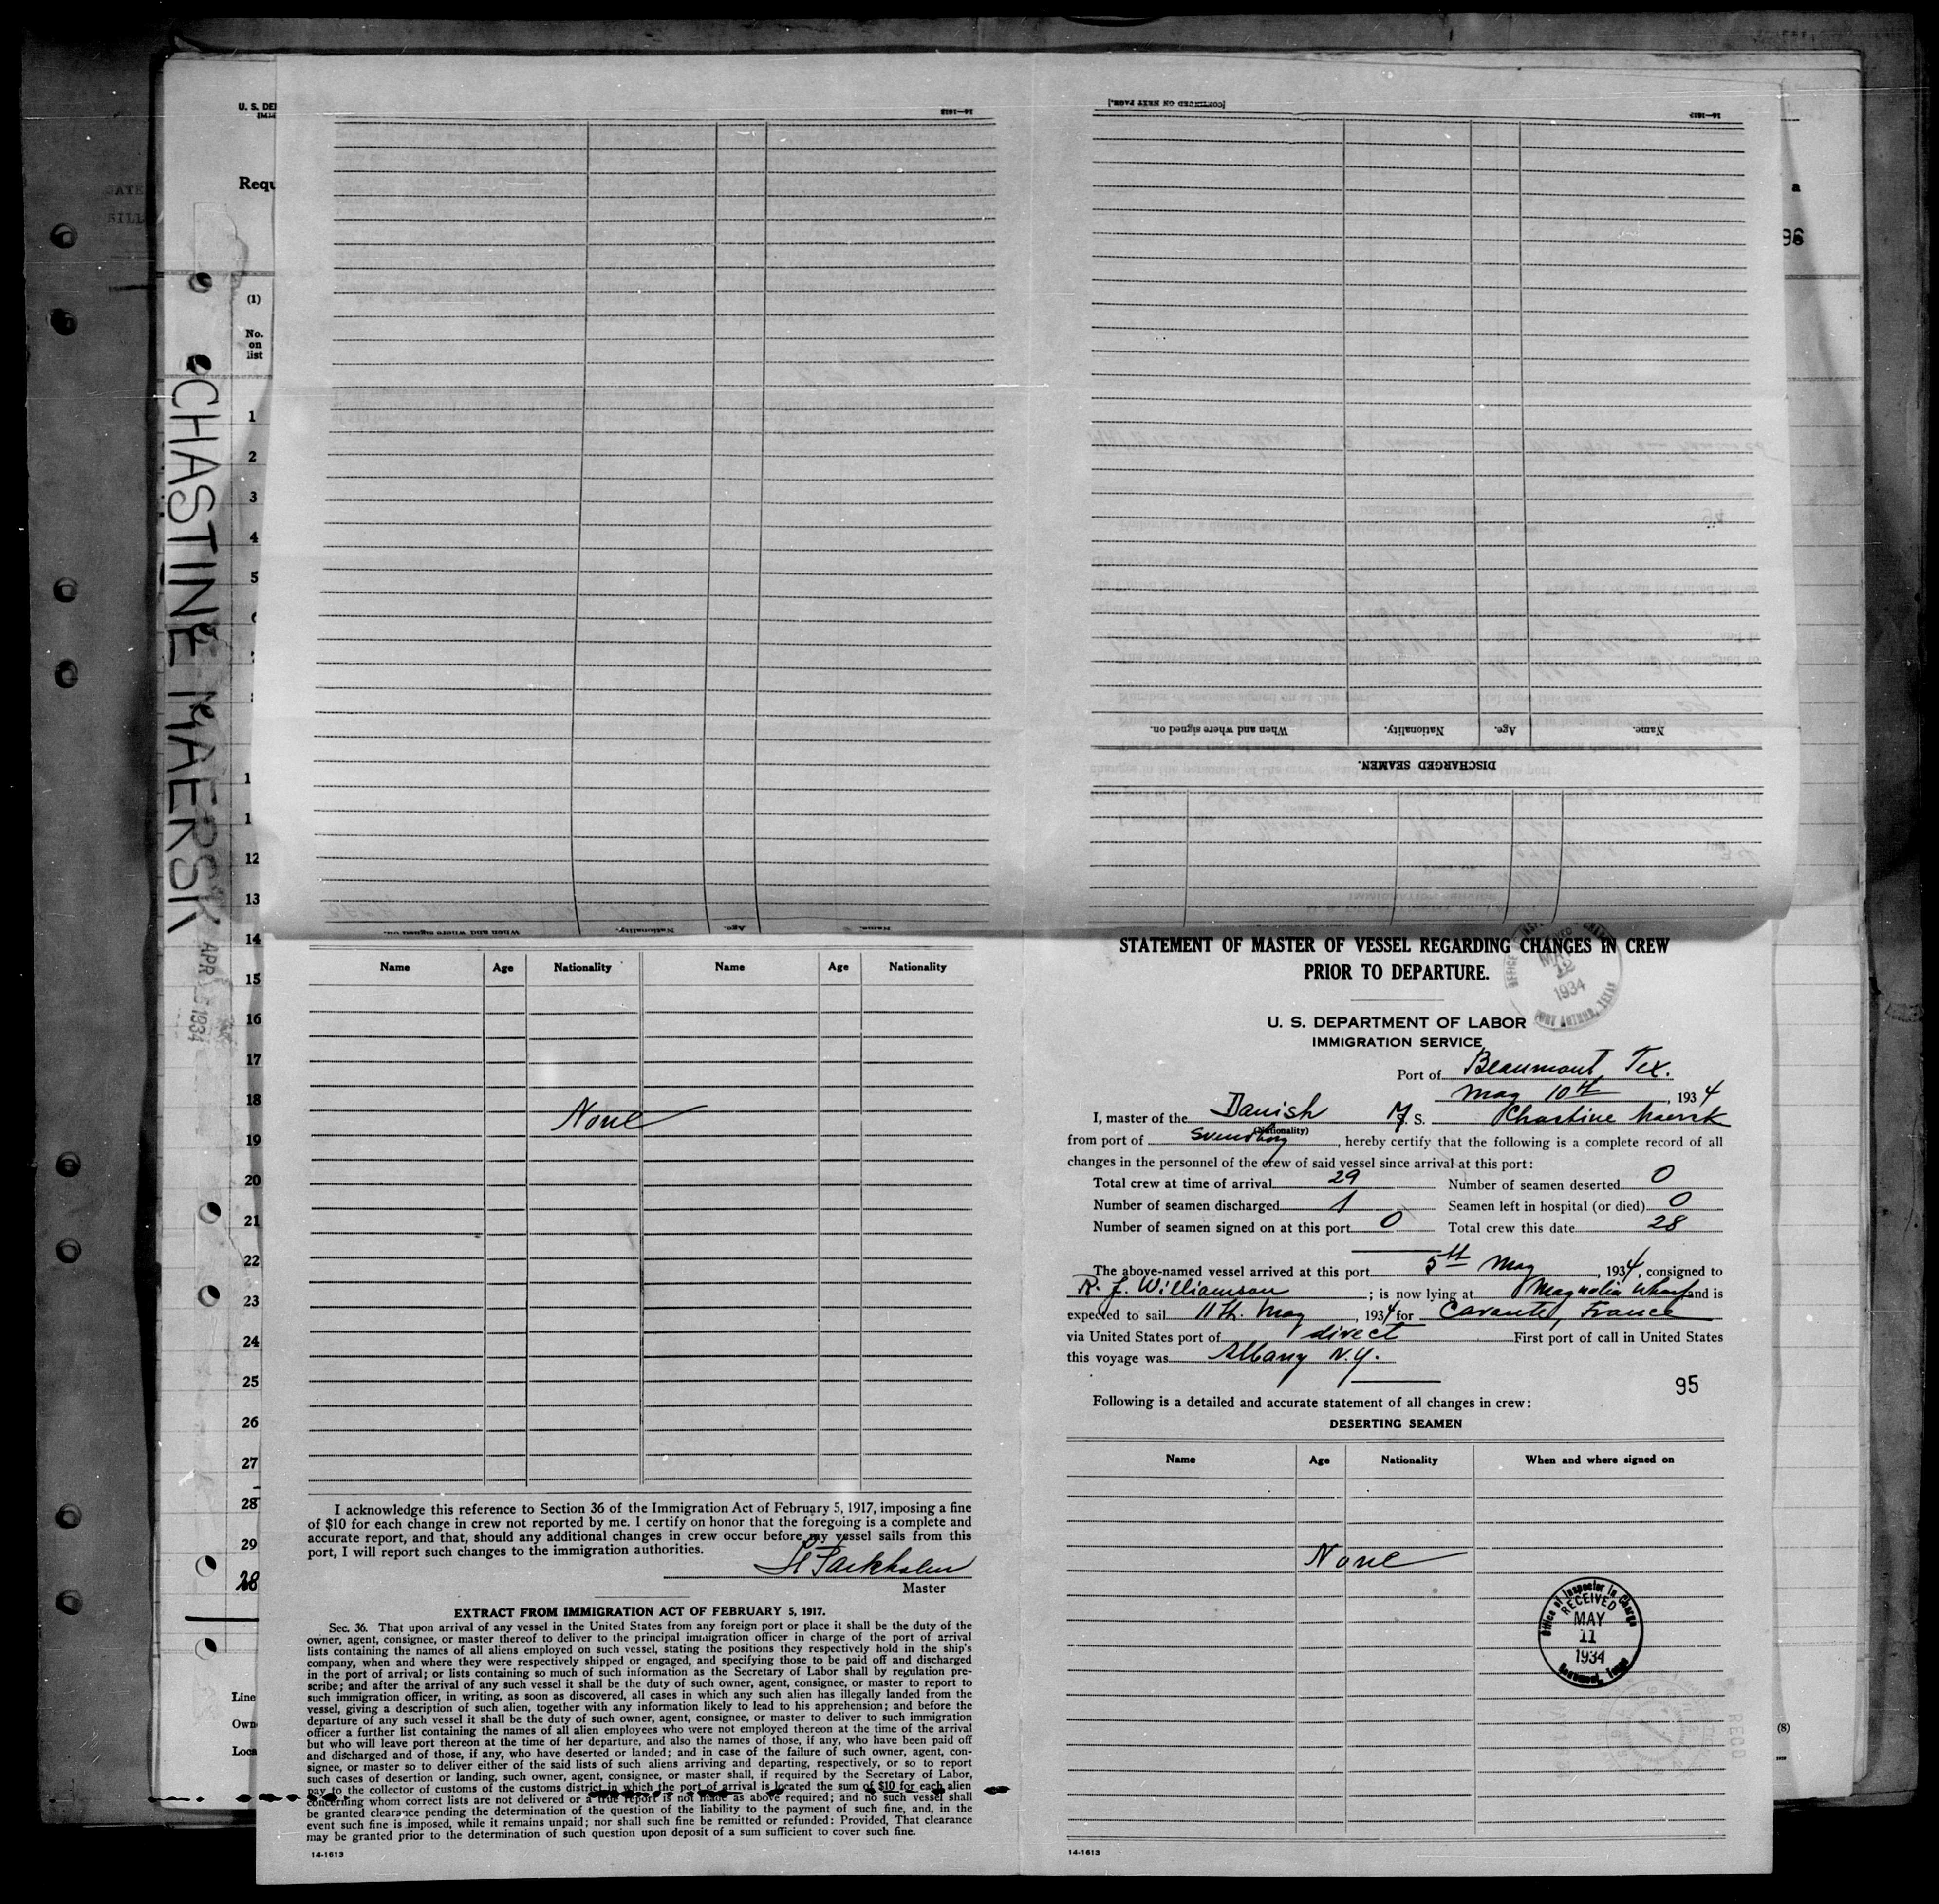 U. S. DE
Requ
(1)
No.
on
list
1
2
3
4
5
1
1
12
13
14
15
16
17
18
19
20
21
22
23
24
25
26
27
28
29
28
Line
Own
Loca
CHASTINE MAERSK
APR 1934
14—1613
[CONTINUED ON NEXT PAGE.]
14—1613
a
96
Name. Age. Nationality. When and where signed on.
DISCHARGED SEAMEN.
Name. Age. Nationality. When and where signed on.
Name Age Nationality Name Age Nationality
None
I acknowledge this reference to Section 36 of the Immigration Act of February 5, 1917, imposing a fine
of $10 for each change in crew not reported by me. I certify on honor that the foregoing is a complete and
accurate report, and that, should any additional changes in crew occur before my vessel sails from this
port, I will report such changes to the immigration authorities.
Master
EXTRACT FROM IMMIGRATION ACT OF FEBRUARY 5, 1917.
Sec. 36. That upon arrival of any vessel in the United States from any foreign port or place it shall be the duty of the
owner, agent, consignee, or master thereof to deliver to the principal immigration officer in charge of the port of arrival
lists containing the names of all aliens employed on such vessel, stating the positions they respectively hold in the ship's
company, when and where they were respectively shipped or engaged, and specifying those to be paid off and discharged
in the port of arrival; or lists containing so much of such information as the Secretary of Labor shall by regulation pre-
scribe; and after the arrival of any such vessel it shall be the duty of such owner, agent, consignee, or master to report to
such immigration officer, in writing, as soon as discovered, all cases in which any such alien has illegally landed from the
vessel, giving a description of such alien, together with any information likely to lead to his apprehension; and before the
departure of any such vessel it shall be the duty of such owner, agent, consignee, or master to deliver to such immigration
officer a further list containing the names of all alien employees who were not employed thereon at the time of the arrival
but who will leave port thereon at the time of her departure, and also the names of those, if any, who have been paid off
and discharged and of those, if any, who have deserted or landed; and in case of the failure of such owner, agent, con-
signee, or master so to deliver either of the said lists of such aliens arriving and departing, respectively, or so to report
such cases of desertion or landing, such owner, agent, consignee, or master shall, if required by the Secretary of Labor,
pay to the collector of customs of the customs district in which the port of arrival is located the sum of $10 for each alien
concerning whom correct lists are not delivered or a true report is not made as above required; and no such vessel shall
be granted clearance pending the determination of the question of the liability to the payment of such fine, and, in the
event such fine is imposed, while it remains unpaid; nor shall such fine be remitted or refunded: Provided, That clearance
may be granted prior to the determination of such question upon deposit of a sum sufficient to cover such fine.
14-1613
STATEMENT OF MASTER OF VESSEL REGARDING CHANGES IN CREW
PRIOR TO DEPARTURE.
MAY 12 1934
U. S. DEPARTMENT OF LABOR
IMMIGRATION SERVICE
Port of Beaumont, Tex.
May 10th, 1934
I, master of the Danish M. S. Chastine Maersk
(Nationality)
from port of Svendborg, hereby certify that the following is a complete record of all
changes in the personnel of the crew of said vessel since arrival at this port:
Total crew at time of arrival 29 Number of seamen deserted 0
Number of seamen discharged 1 Seamen left in hospital (or died) 0
Number of seamen signed on at this port 0 Total crew this date 28
The above-named vessel arrived at this port 5th May, 1934, consigned to
R. J. Williamson; is now lying at Magnolia Wharf and is
expected to sail 11th. May, 1934 for Caronte, France
via United States port of direct First port of call in United States
this voyage was Albany N.Y.
95
Following is a detailed and accurate statement of all changes in crew:
DESERTING SEAMEN
Name Age Nationality When and where signed on
None
Office of Inspector in Charge
RECEIVED
MAY
11
1934
Beaumont, Texas
RECD
(8)
14-1613